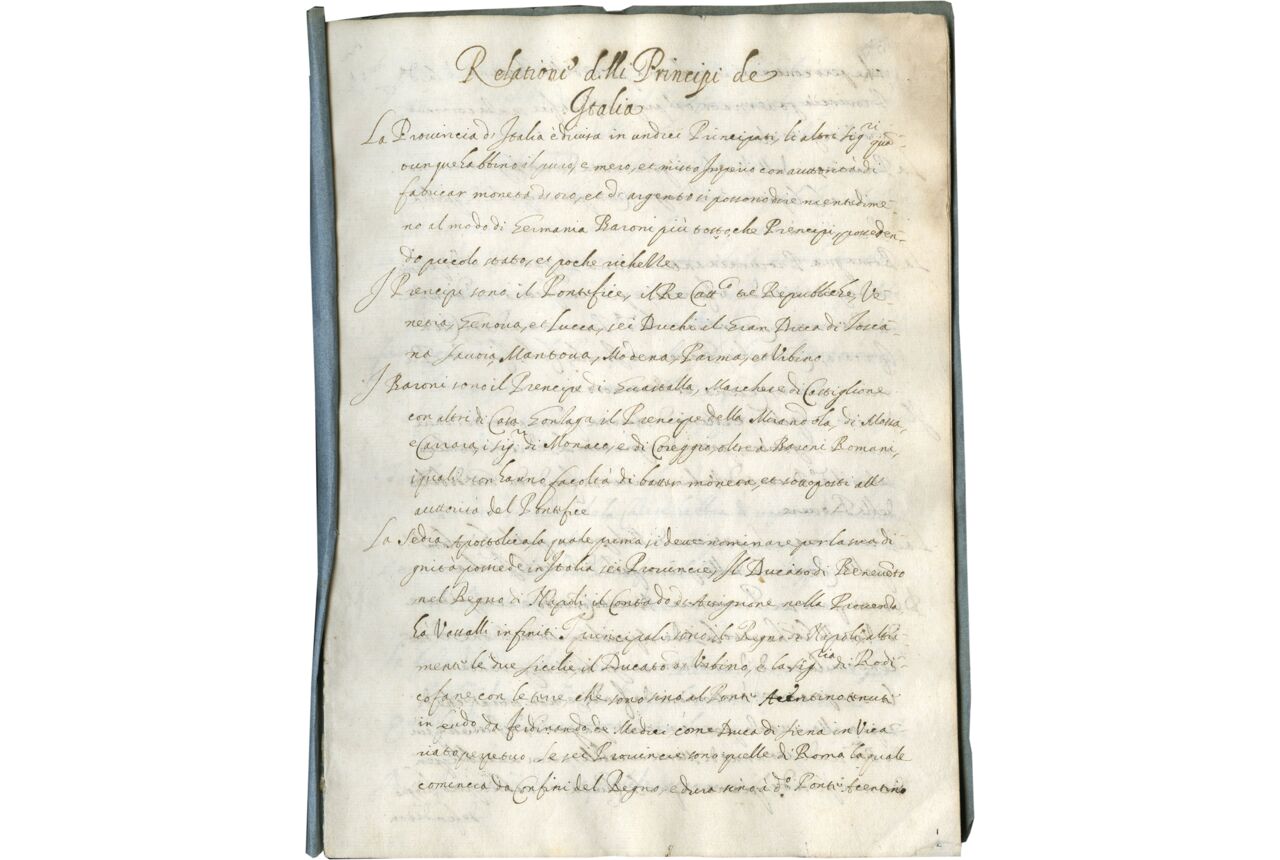 Relationi delli Principi de
Italia
La Provincia di Italia è divisa in undici Principati, li altri sig.ri qua-
tunque habbino il puro, e mero, et misto Imperio con auttorità di
fabricar moneta di oro, et di argento si possono dire nientedime-
no al modo di Germania Baroni più tosto, che Prencipi, posseden-
do piccolo stato, et poche richezze
I Prencipi sono il Pontefice, il Re Catt.o tre Republiche, Ve-
netia, Genova, et Lucca, sei Duchi il Gran Duca di Tosca-
na Savoia, Mantova, Modena, Parma, et Urbino
I Baroni sono il Prencipe di Guastalla, Marchese di Castiglione
con altri di Casa Gonzaga il Prencipe della Mirandola, di Massa,
e Carrara, i sig.ri di Monaco, e di Coreggio, oltre à Baroni Romani,
i quali non hanno facoltà di batter moneta, et sottoposti all
auttorità del Pontefice
La Sedia Apostolica la quale prima si deve nominare per la sua di
gnità, possede in Italia sei Provincie, Il Ducato di Benevento
nel Regno di Napoli il Contado di Avignone nella Provenza
ha Vassalli infiniti. Principali sono il Regno di Napoli altri-
menti le due Sicilie il Ducato di Urbino, e la sig.ria di Radi-
cofane con le terre che sono sino al Ponte Acentino tenuti
in feudo da Ferdinando de Medici come Duca di Siena in Vica
riato perpetuo, Le sei Provincie sono quelle di Roma la quale
comincia da Confini del Regno, e dura sino à d.o Ponte Acentino